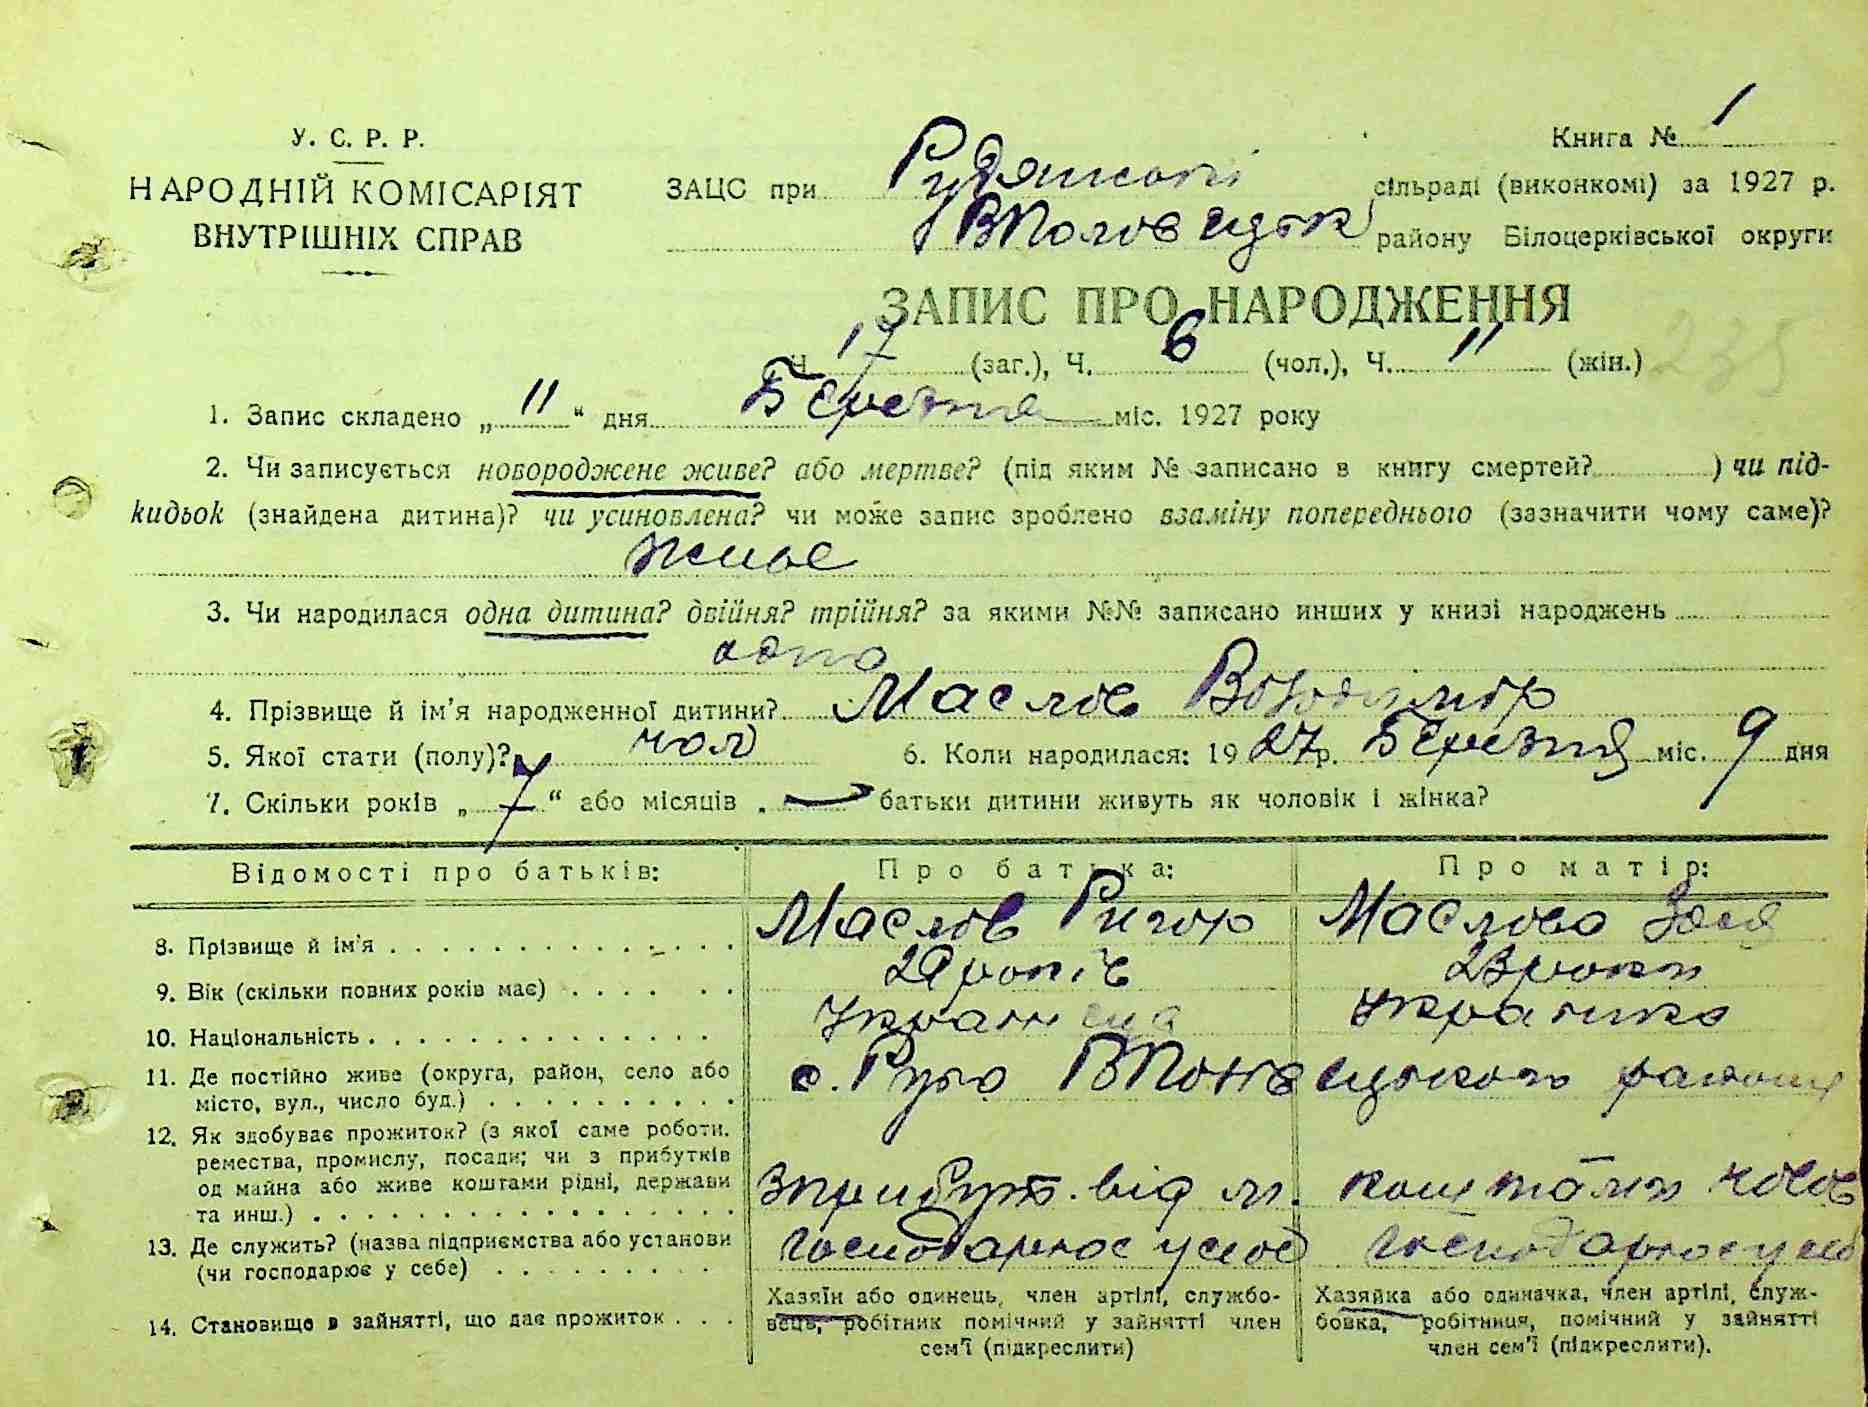 Книга № 1
У. С. Р. Р.
НАРОДНІЙ КОМІСАРІЯТ
ВНУТРІШНІХ СПРАВ
ЗАЦС при Рудянскі сільраді (виконкомі) за 1927 р.
В Половецьк району Білоцерківської округи
ЗАПИС ПРО НАРОДЖЕННЯ
Ч. 17 (заг.), Ч. 6 (чол.), Ч. 11 (жін.) 235
1. Запис складено „ 11 “ дня Березня міс. 1927 року
2. Чи записується новороджене живе? або мертве? (під яким № записано в книгу смертей? ) чи під-
кидьок (знайдена дитина)? чи усиновлена? чи може запис зроблено взаміну попереднього (зазначити чому саме)?
живе
3. Чи народилася одна дитина? двійня? трійня? за якими №№ записано инших у книзі народжень
одна
4. Прізвище й ім'я народженної дитини? Маслов Володимир
5. Якої стати (полу)? чол 6. Коли народилася: 1927 р. Березня міс. 9 дня
7. Скільки років „ 7 “ або місяців „ — батьки дитини живуть як чоловік і жінка?
Відомості про батьків: Про батька: Про матір:
8. Прізвище й ім'я Маслов Ригор Маслова
9. Вік (скільки повних років має) 29 років 23 роки
10. Національність Українец Українка
11. Де постійно живе (округа, район, село або
місто, вул., число буд.) с. Руда В Половецького району
12. Як здобуває прожиток? (з якої саме роботи.
ремества, промислу, посади; чи з прибутків
од майна або живе коштами рідні, держави
та инш.) З прибутк. від м. коштами чолов
13. Де служить? (назва підприємства або установи
(чи господарює у себе) Господарює у себе Господарює у себе
14. Становище в зайнятті, що дає прожиток
Хазяїн або одинець, член артілі, службо-
вець, робітник помічний у зайнятті член
сем'ї (підкреслити)
Хазяйка або одиначка, член артілі, служ-
бовка, робітниця, помічний у зайнятті
член сем'ї (підкреслити).